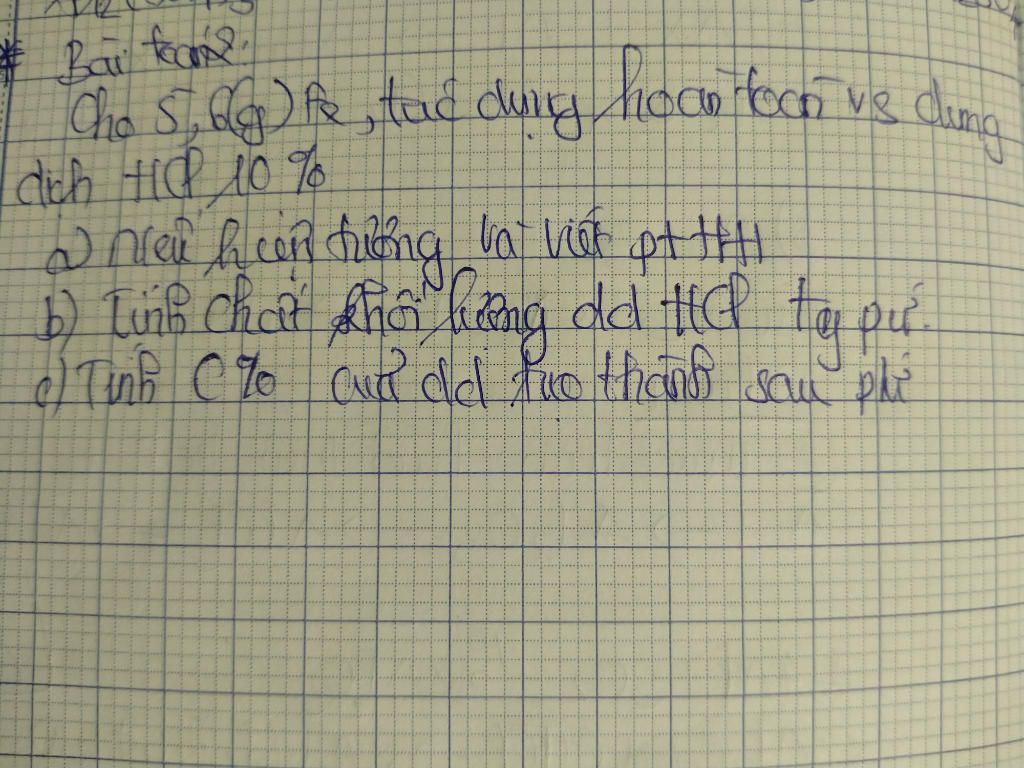 * Bài toán:
Cho 5,6(g) Fe, tác dụng hoàn toàn vs dung
dịch HCl 10%
a) Nêu hiện tượng và viết ptHH
b) Tính chất khối lượng dd HCl tg pứ.
c) Tính C% của dd tạo thành sau pứ